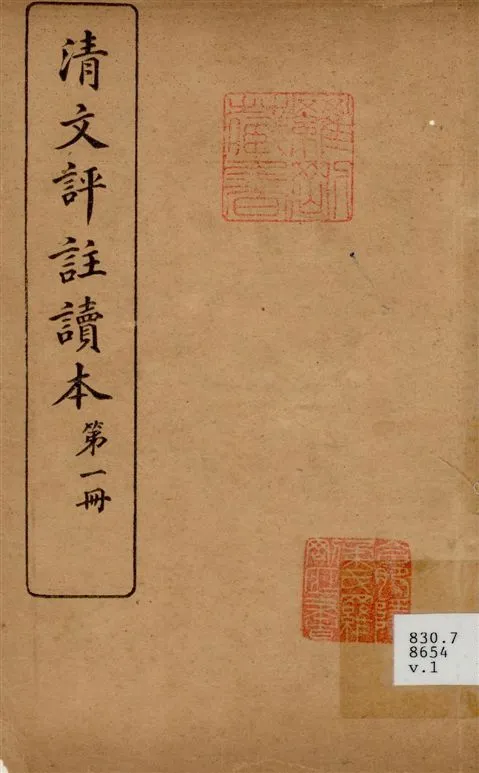 清文評註讀本 第一冊
830.7
8654
v.1